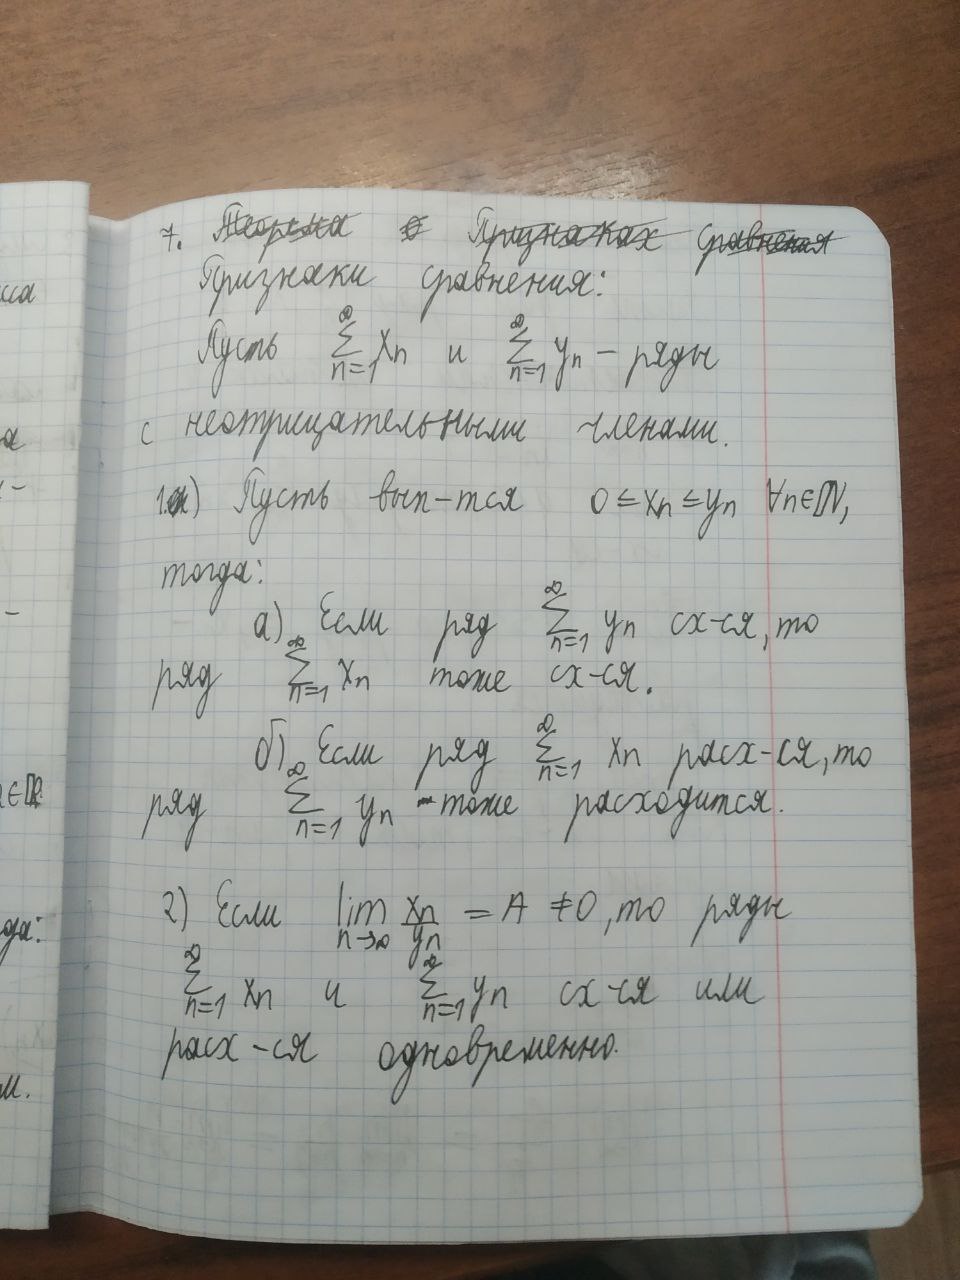 7. Теорема о Признаках сравнения
Признаки сравнения:
Пусть ∑_{n=1}^{∞} xₙ и ∑_{n=1}^{∞} yₙ – ряды
с неотрицательными членами.
1.) Пусть вып-тся 0 ≤ xₙ ≤ yₙ ∀n∈ℕ,
тогда:
а) Если ряд ∑_{n=1}^{∞} yₙ сх-ся, то
ряд ∑_{n=1}^{∞} xₙ тоже сх-ся.
б) Если ряд ∑_{n=1}^{∞} xₙ расх-ся, то
ряд ∑_{n=1}^{∞} yₙ тоже расходится.
2) Если lim_{n→∞} xₙ/yₙ = A ≠ 0, то ряды
∑_{n=1}^{∞} xₙ и ∑_{n=1}^{∞} yₙ сх-ся или
расх-ся одновременно.